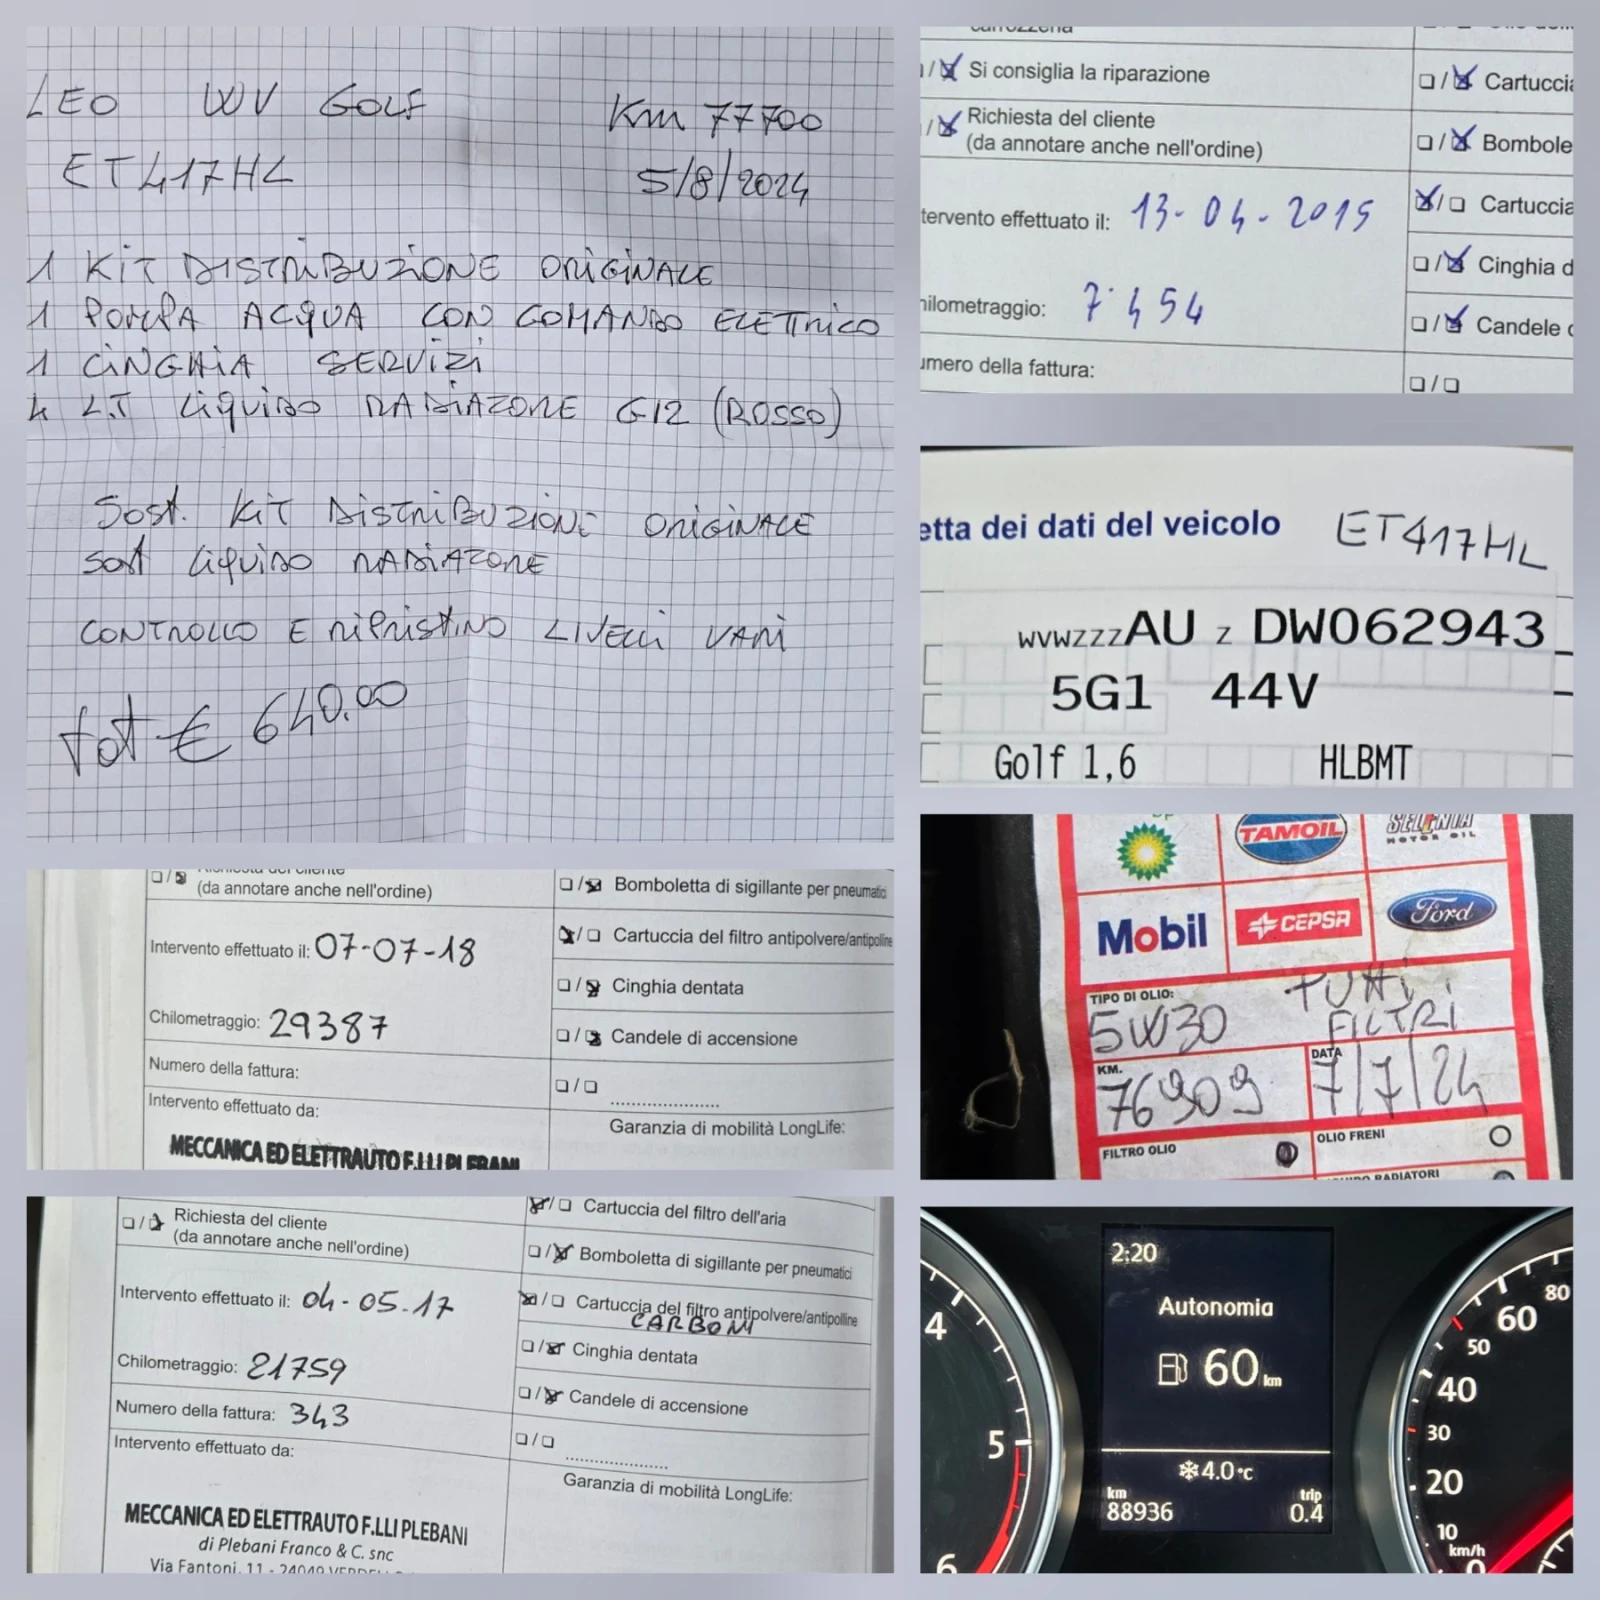 LEO WV GOLF Km 77700
ET417HL 5/8/2024
1 KIT DISTRIBUZIONE ORIGINALE
1 POMPA ACQUA CON COMANDO ELETTRICO
1 CINGHIA SERVIZI
4 LT LIQUIDO RADIAZONE G12 (ROSSO)
Sost. KIT DISTRIBUZIONE ORIGINALE
Sost LIQUIDO RADIAZONE
CONTROLLO E RIPRISTINO LIVELLI VARI
tot € 640.00
carrozzeria
Si consiglia la riparazione
Cartuccia
Richiesta del cliente
(da annotare anche nell'ordine)
Bombole
tervento effettuato il: 13-04-2015
Cartuccia
Cinghia d
hilometraggio: 7.454
Candele d
umero della fattura:
etta dei dati del veicolo ET417HL
WVWZZZAU Z DW062943
5G1 44V
Golf 1,6 HLBMT
bp
TAMOIL
SELENIA
MOTOR OIL
Mobil
CEPSA
Ford
TIPO DI OLIO: TUTTI
5W30 FILTRI
KM. 76909
DATA 7/7/24
FILTRO OLIO
OLIO FRENI
RADIATORI
Richiesta del cliente
(da annotare anche nell'ordine)
Bomboletta di sigillante per pneumatici
Intervento effettuato il: 07-07-18
Cartuccia del filtro antipolvere/antipolline
Cinghia dentata
Chilometraggio: 29387
Candele di accensione
Numero della fattura:
Intervento effettuato da:
Garanzia di mobilità LongLife:
MECCANICA ED ELETTRAUTO F.LLI PLEBANI
Cartuccia del filtro dell'aria
Richiesta del cliente
(da annotare anche nell'ordine)
Bomboletta di sigillante per pneumatici
Intervento effettuato il: 04-05-17
Cartuccia del filtro antipolvere/antipolline
CARBONI
Cinghia dentata
Chilometraggio: 21759
Candele di accensione
Numero della fattura: 343
Intervento effettuato da:
Garanzia di mobilità LongLife:
MECCANICA ED ELETTRAUTO F.LLI PLEBANI
di Plebani Franco & C. snc
Via Fantoni, 11 - 24049
2:20
Autonomia
60 km
4.0°C
km trip
88936 0.4
4
5
6
80
60
50
40
30
20
10
km/h
0